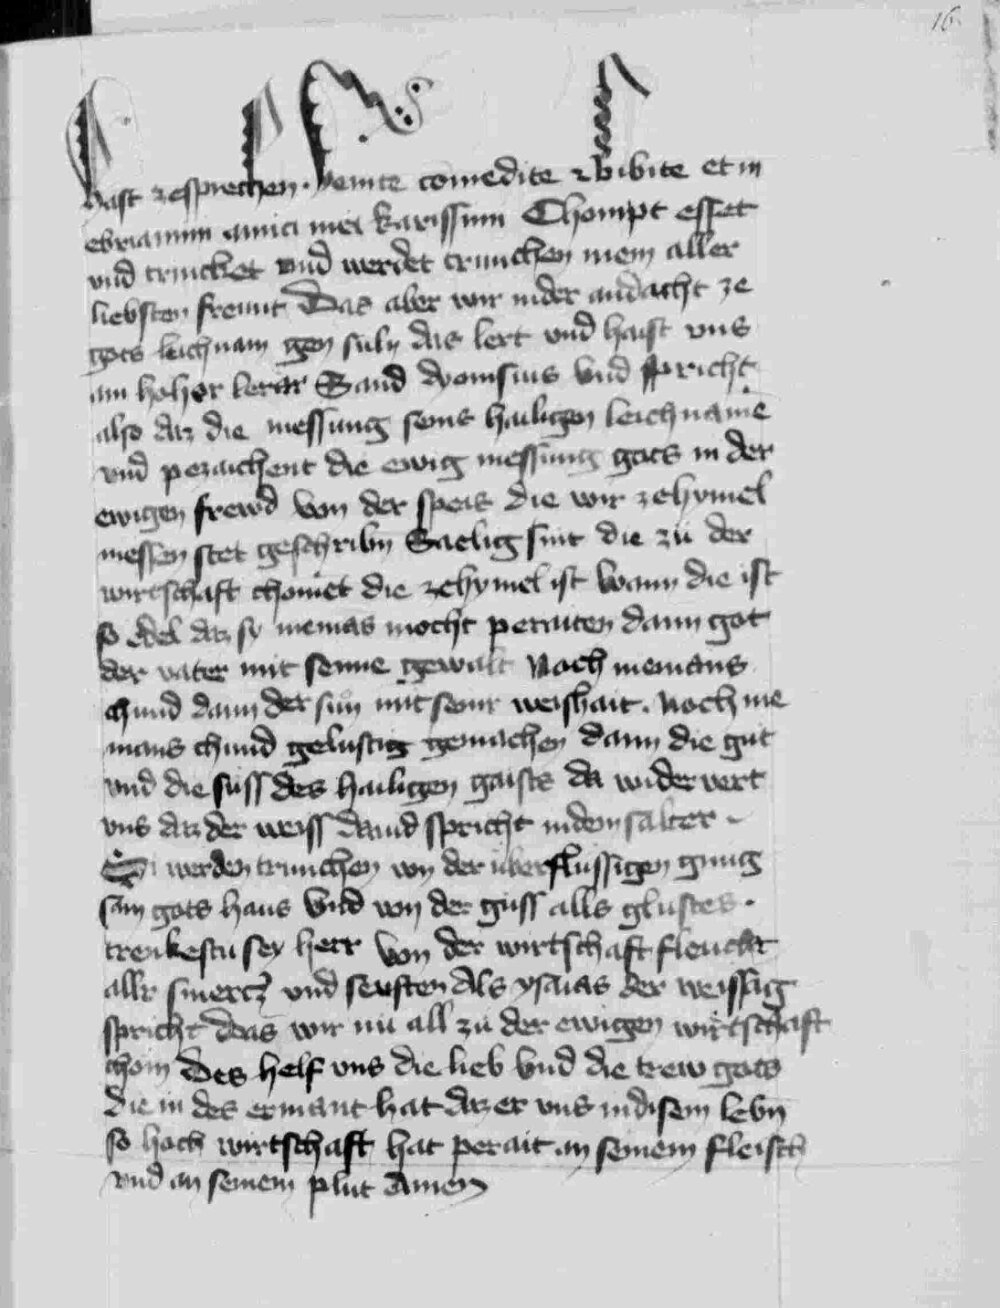 16
hast zesprechen. Venite comedite & bibite et in
ebriamini amici mei karissimi Chompt esset
vnd trinchet vnd werdet trunchen mein aller
liebsten freunt Das aber wir in der andacht ze
gots leichnam gen suln das lert vnd haist vns
ain hoher lerer Sand dyonisius vnd spricht
also daz die messung seins hailigen leichname
vnd pezaichent die ewig messung gots in der
ewigen frewd Von der speis die wir zehymel
messen stet geschribn Saelig sint die zu der
wirtschaft choment die zehymel ist Wann die ist
so edel daz sy niemas mocht peraiten dann got
der vater mit seine gewalt Noch niemans
chund dann der sun mit seinr weishait. Noch nie
mans chund gelustig gemachen dann die gut
vnd die suss des hailigen gaists da widervert
vns daz der weiss dauid spricht in dem salter
Si werden trunchen von der uberflussigen gnug
sam gots haus Vnd von der guss alls glustes.
trenkestu sey herr Von der wirtschaft fleucht
aller smertz vnd seuften Als ysaias der weissag
spricht das wir nu all zu der ewigen wirtschaft
chom Des helf vns die lieb Vnd die trew gots
die in des ermant hat daz er vns in disem lebn
so hoch wirtschaft hat perait an seinem fleisch
vnd an seinem plut Amen